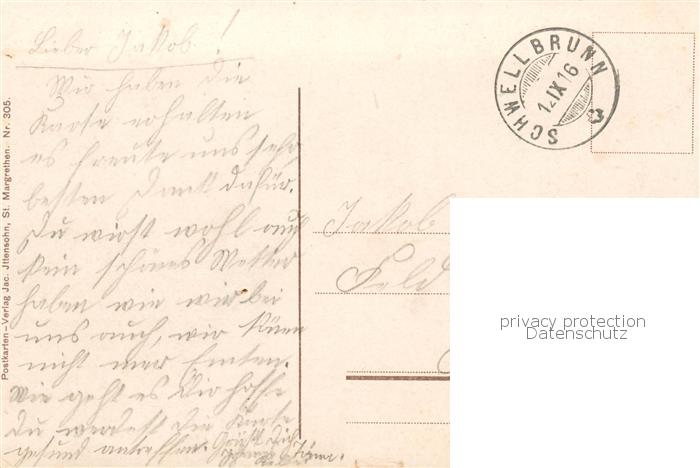 Lieber Jakob!
Wir haben die
Karte erhalten
es freute uns sehr
besten Dank dafür.
Du wirst wohl auch
kein schönes Wetter
haben wie wir bei
uns auch, wir
nicht mer
Wie geht es Dir hoffe
Du werdest die Karte
gesund antreffen. Grüßt dich
SCHWELLBRUNN
1.IX.16
Jakob
Feld
privacy protection
Datenschutz
Postkarten-Verlag Jac. Jttensohn, St. Margrethen. Nr. 305.